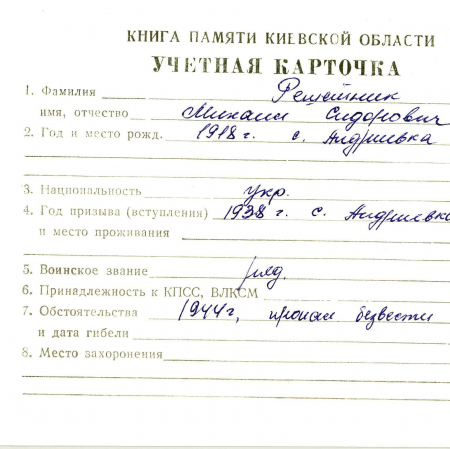 КНИГА ПАМЯТИ КИЕВСКОЙ ОБЛАСТИ
УЧЕТНАЯ КАРТОЧКА
1. Фамилия Решетник
имя, отчество Михаил Сидорович
2. Год и место рожд. 1918 г. с. Андриевка
3. Национальность укр.
4. Год призыва (вступления) 1938 г. с. Андриевка
и место проживания
5. Воинское звание ряд.
6. Принадлежность к КПСС, ВЛКСМ
7. Обстоятельства 1944 г, пропал безвести
и дата гибели
8. Место захоронения